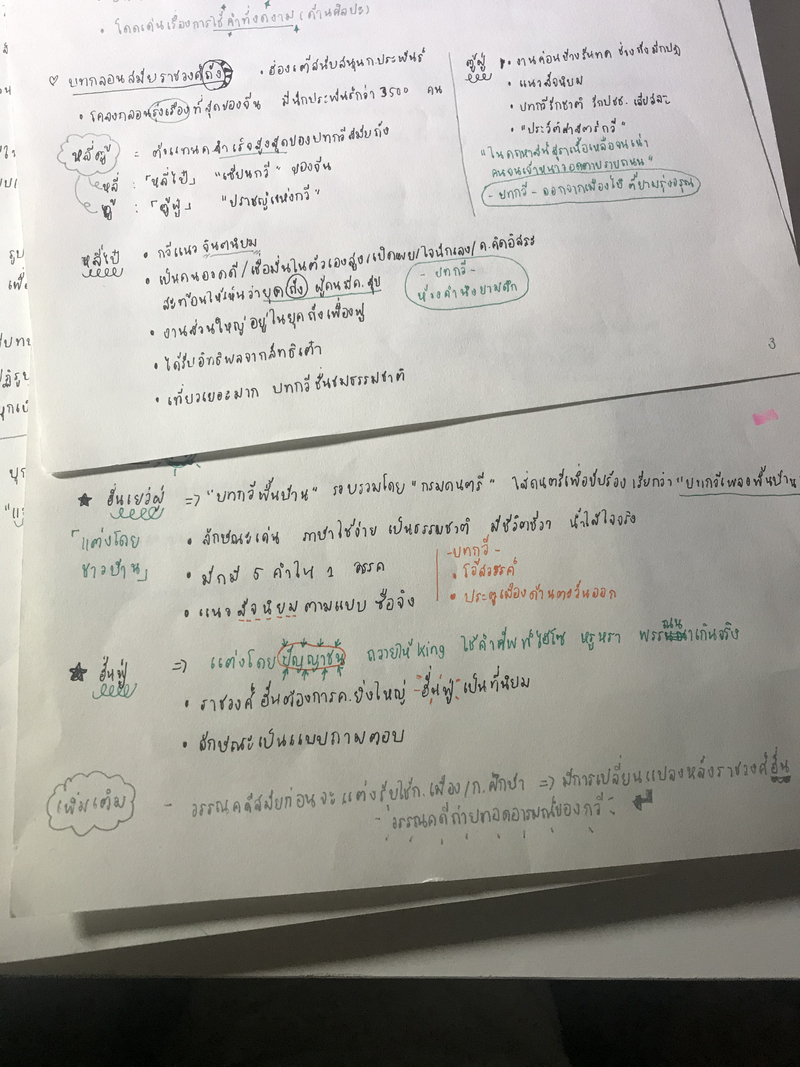 • โดดเด่นเรื่องการใช้คำที่งดงาม (ด้านศิลปะ)
♡ บทกลอนสมัยราชวงศ์ถัง • ฮ่องเต้สนับสนุนก.ประพันธ์
• โคลงกลอนรุ่งเรืองที่สุดของจีน มีนักประพันธ์กว่า 3500 คน
หลี่ตู้ = ตัวแทนค.สำเร็จสูงสุดของบทกวีสมัยถัง
หลี่ : 「หลี่ไป๋」 "เซียนกวี" ของจีน
ตู้ : 「ตู้ฝู่」 "ปราชญ์แห่งกวี"
ตู้ฝู่ • งานค่อนข้างรันทด
• แนวสัจนิยม
• บทกวีรักชาติ รักปชช. เสียสละ
• "ประวัติศาสตร์กวี"
"ในคฤหาสน์สุราเนื้อเหลือจนเน่า
คนจนเจ้าหนาวอดตายรายถนน"
- บทกวี - ออกจากเมืองไป๋ตี้ยามรุ่งอรุณ
หลี่ไป๋ • กวีแนว จินตนิยม
• เป็นคนอวดดี / เชื่อมั่นในตัวเองสูง / เปิดเผย / ใจนักเลง / ค.คิดอิสระ
สะท้อนให้เห็นว่ายุคถัง ผู้คนมีค.สุข
- บทกวี -
ห้วงคำนึงยามดึก
• งานส่วนใหญ่อยู่ในยุคถังเฟื่องฟู
• ได้รับอิทธิพลจากลัทธิเต๋า
• เที่ยวเยอะมาก บทกวีชื่นชมธรรมชาติ
3
★ ฮั่นเยว่ฝู่ => "บทกวีพื้นบ้าน" รวบรวมโดย "กรมดนตรี" ใส่ดนตรีเพื่อขับร้อง เรียกว่า "บทกวีเพลงพื้นบ้าน"
「แต่งโดย
ชาวบ้าน」
• ลักษณะเด่น ภาษาใช้ง่าย เป็นธรรมชาติ มีชีวิตชีวา น้ำใสใจจริง
• มักมี 5 คำใน 1 วรรค
• แนว สัจนิยม ตามแบบ ซือจิง
- บทกวี -
• โอ้สวรรค์
• ประตูเมืองด้านตะวันออก
★ ฮั่นฟู่ => แต่งโดยปัญญาชน ถวายให้ king ใช้คำศัพท์ไฮโซ หรูหรา พรรณนาเกินจริง
• ราชวงศ์ฮั่นต้องการค.ยิ่งใหญ่ ฮั่นฟู่ เป็นที่นิยม
• ลักษณะเป็นแบบถามตอบ
เพิ่มเติม - วรรณคดีสมัยก่อนจะแต่งรับใช้ก.เมือง / ก.ศึกษา => มีการเปลี่ยนแปลงหลังราชวงศ์ฮั่น
- วรรณคดีถ่ายทอดอารมณ์ของกวี -